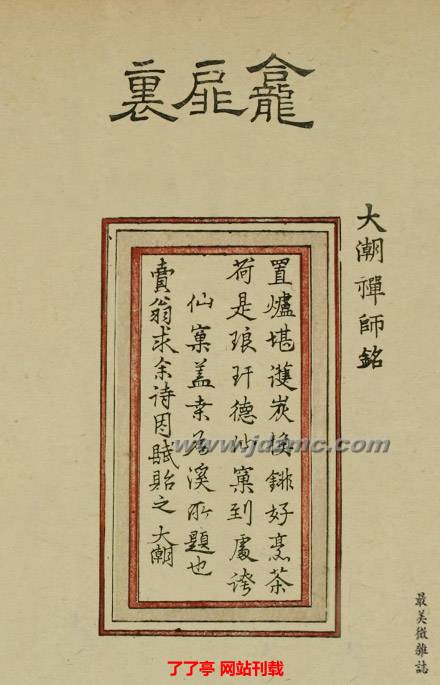 龕扉裏
大潮禪師銘
置爐堪護炭換好烹茶
荷是琅玕德仙窠到處誇
仙窠盖溪所題也
賣翁求余詩因賦貽之 大潮
www.jdzmc.com
最美微雜誌
了了亭 网站刊载